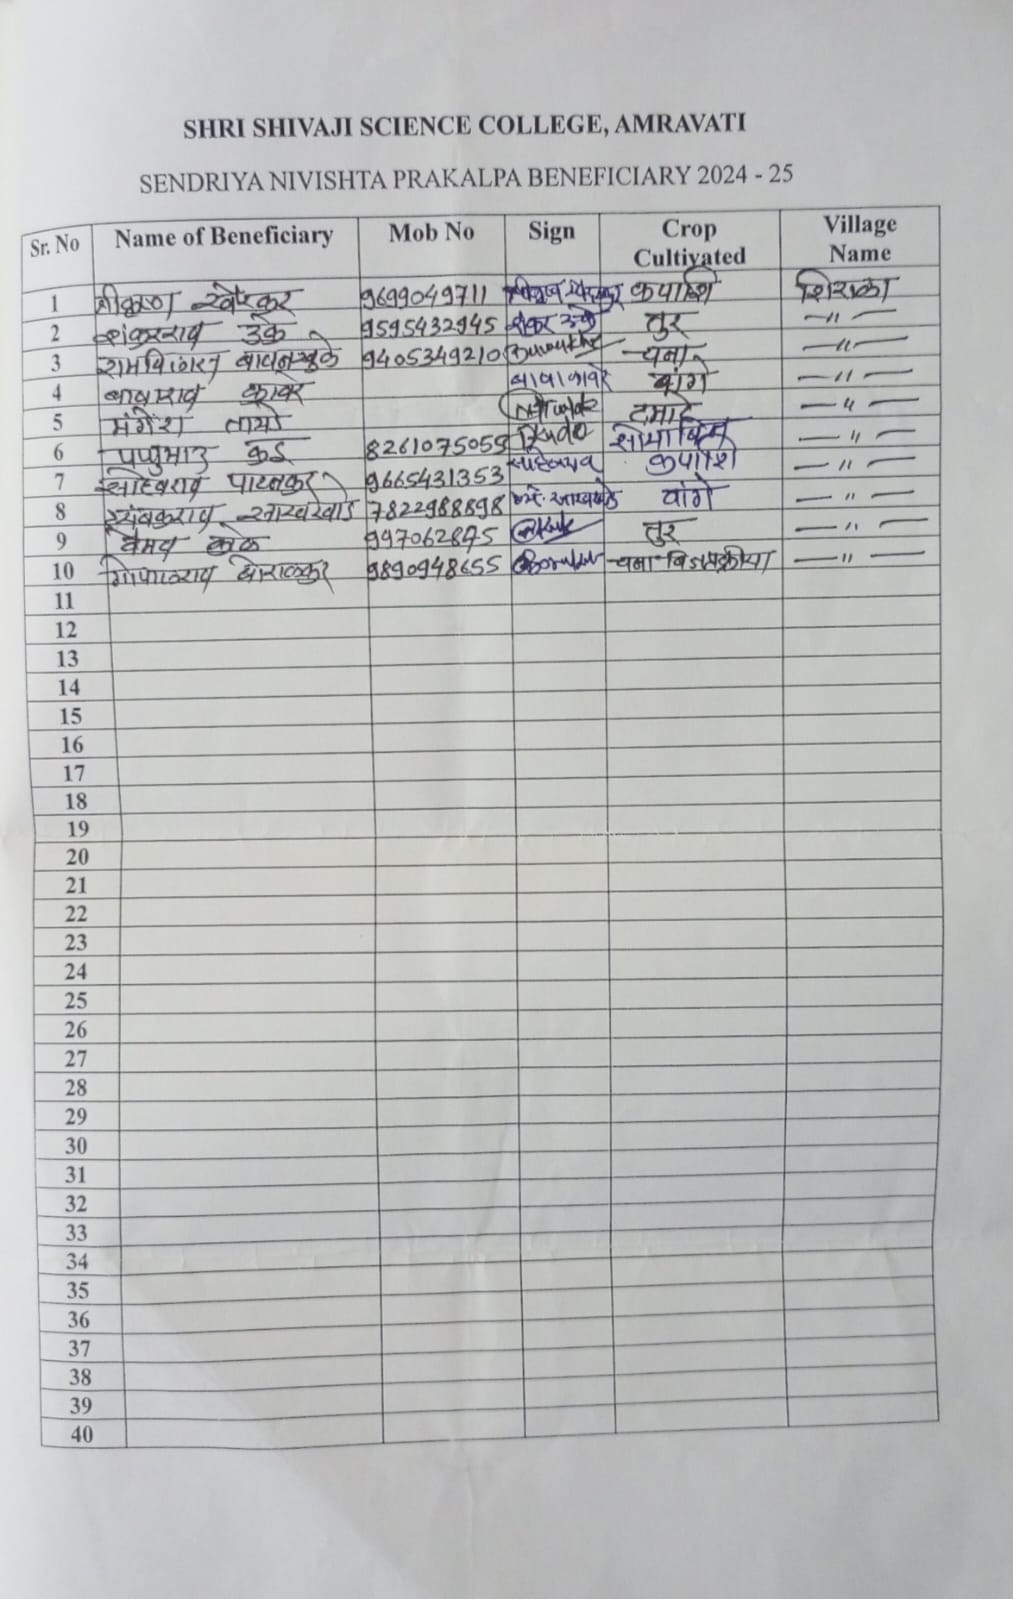 SHRI SHIVAJI SCIENCE COLLEGE, AMRAVATI
SENDRIYA NIVISHTA PRAKALPA BENEFICIARY 2024 - 25
Sr. No Name of Beneficiary Mob No Sign Crop Cultivated Village Name
1 श्रीकृष्ण 9699049711 कपाशि शिराळा
2 शंकरराव उके 9595432945 शंकर उके तुर —〃—
3 9405349210 चना —〃—
4 बाबाराव कावरे वांगे —〃—
5 मंगेश तायडे टमाटे —〃—
6 8261075059 सोयाबिन —〃—
7 साहेबराव पाटनकर 9665431353 साहेबराव कपाशि —〃—
8 त्र्यंबकराव 7822988898 वांगे —〃—
9 वैभव काळे 997062875 तुर —〃—
10 गोपाळराव 9890948655 चना —〃—
11
12
13
14
15
16
17
18
19
20
21
22
23
24
25
26
27
28
29
30
31
32
33
34
35
36
37
38
39
40